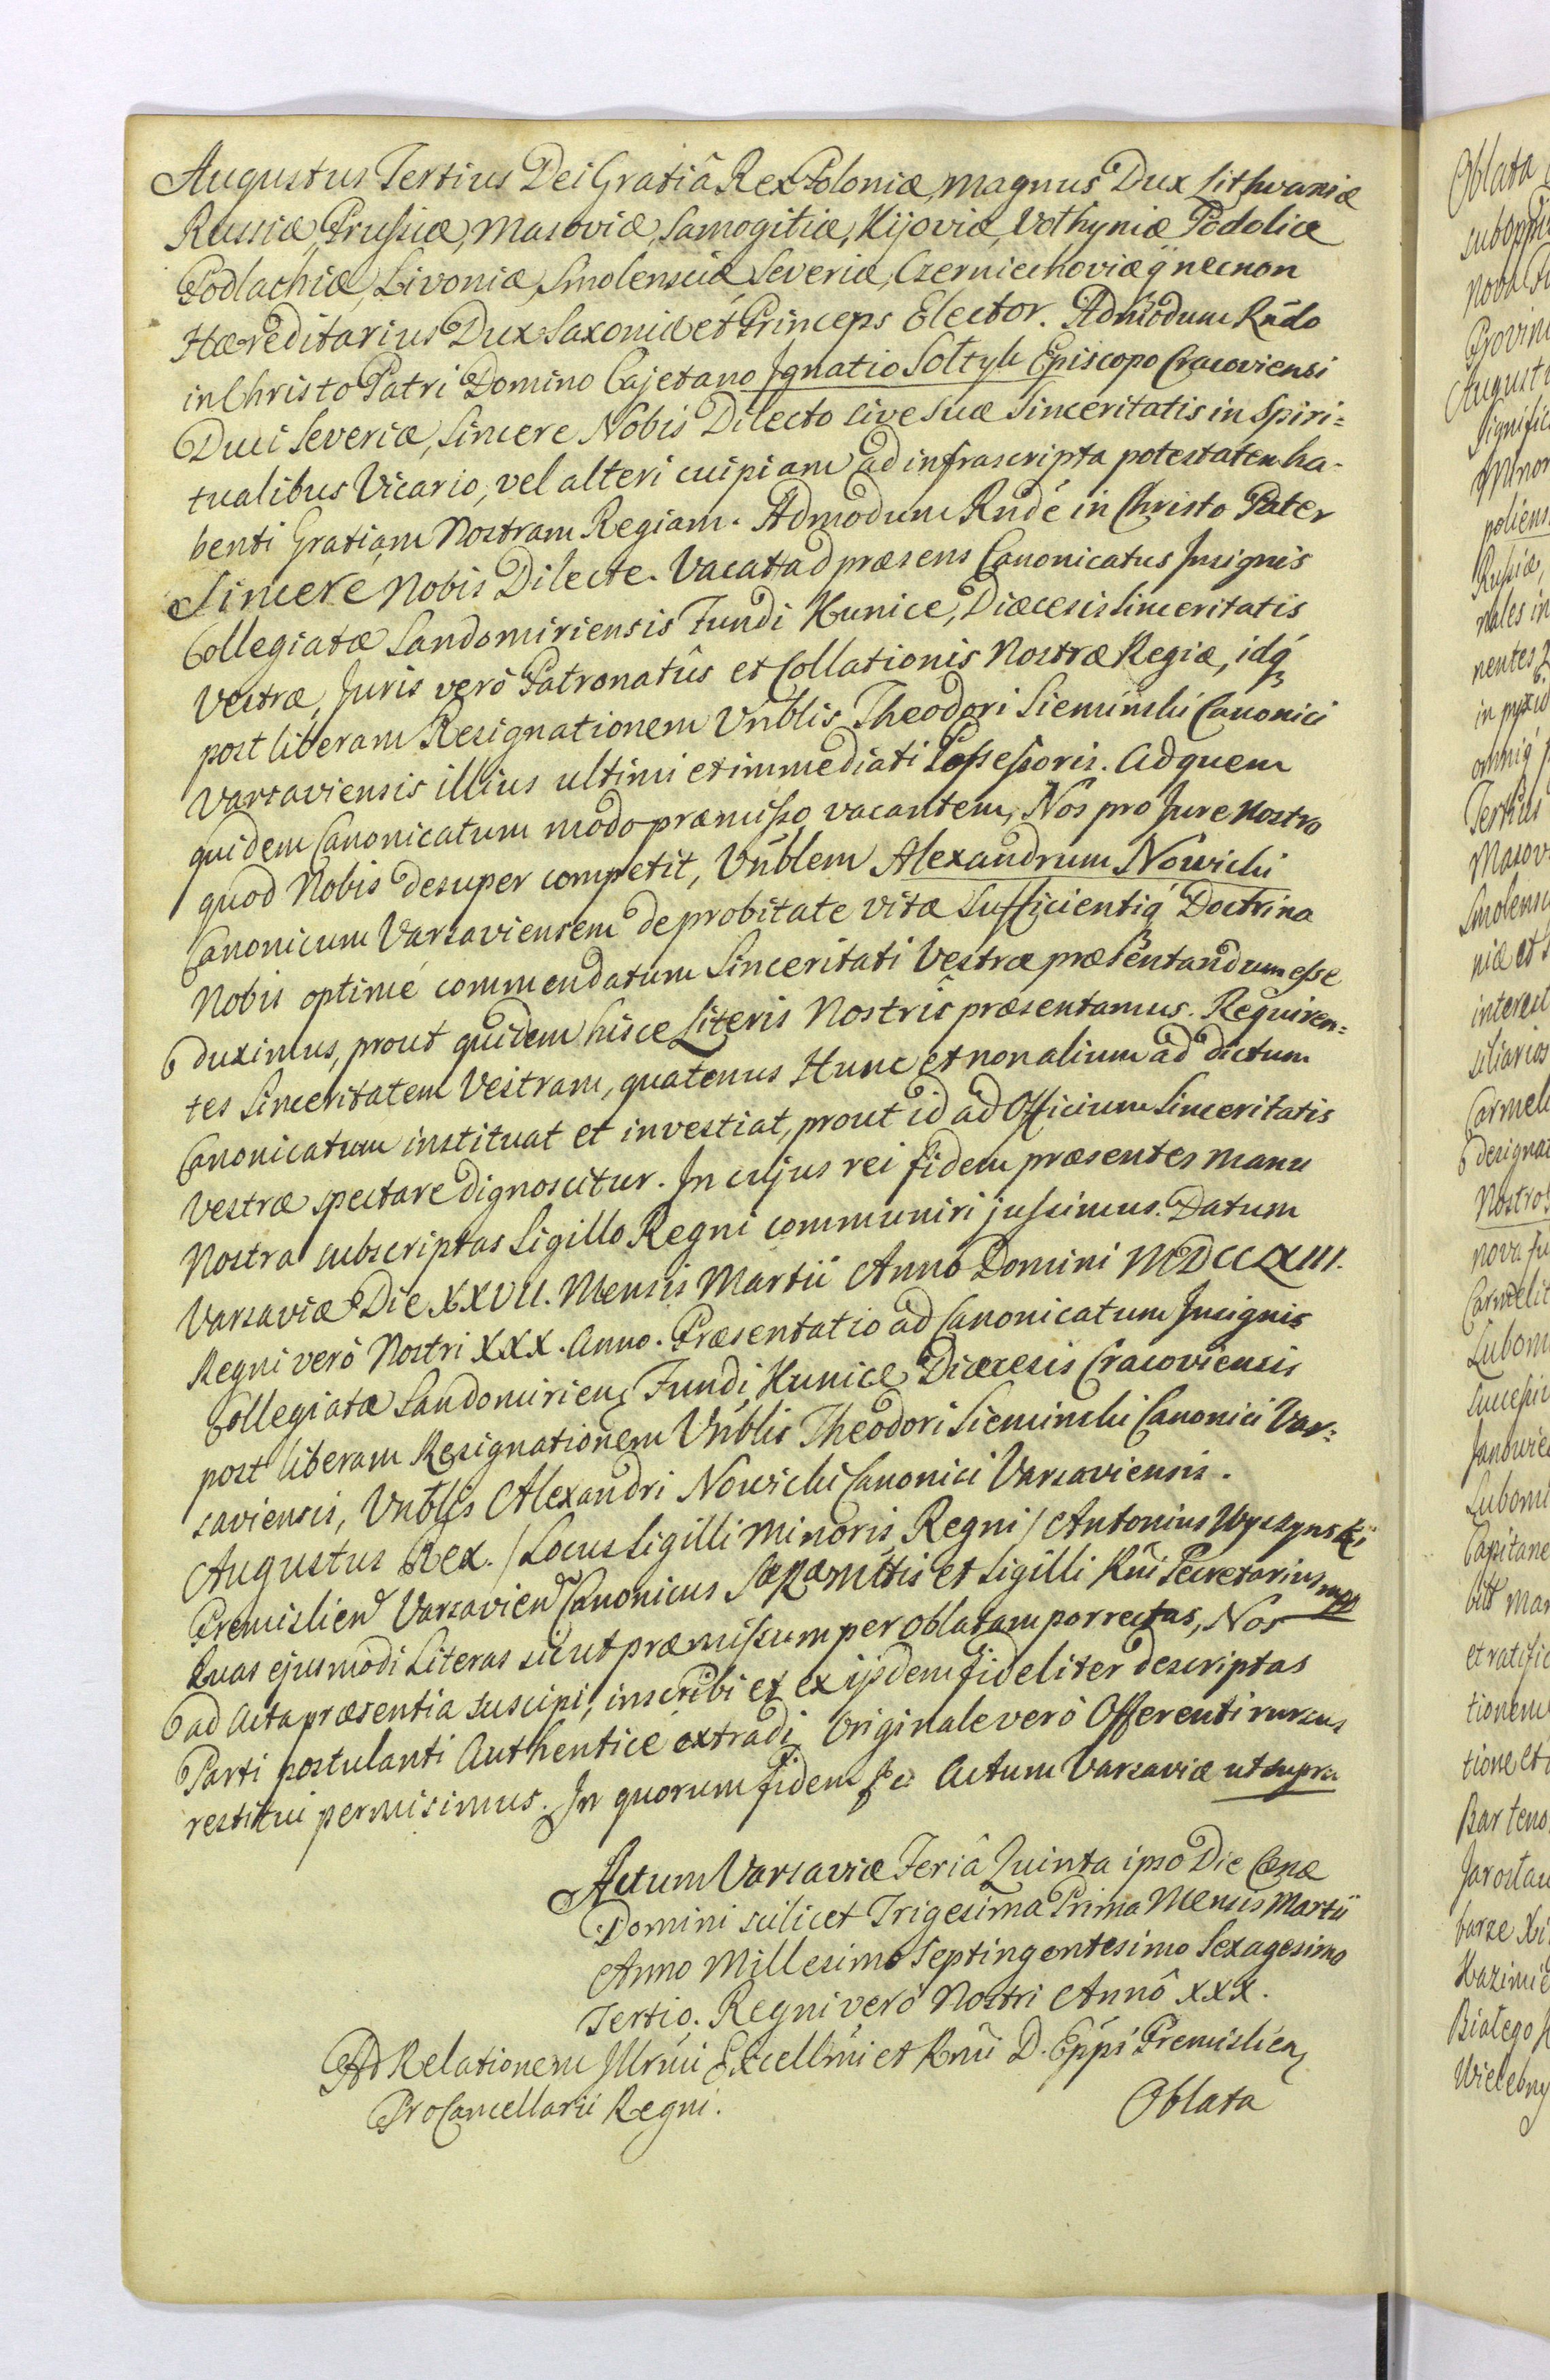 Augustus Tertius Dei Gratiâ Rex Poloniæ, Magnus Dux Lithvaniæ
Russiæ, Prussiæ, Masoviæ, Samogitiæ, Kijoviæ, Volhyniæ Podoliæ
Podlachiæ, Livoniæ, Smolensciæ Severiæ, Czerniechoviæq́ necnon
Hæreditarius Dux Saxoniæ et Princeps Elector. Admodum Rñdo
in Christo Patri Domino Cajetano Ignatio Sołtyk Episcopo Cracoviensi
Duci Severiæ, Sincere Nobis Dilecto sive Suæ Sinceritatis in Spiri=
tualibus Vicario, vel alteri cuipiam ad infrascripta potestatem ha-
benti Gratiam Nostram Regiam. Admodum Rñde in Christo Pater
Sincere Nobis Dilecte. Vacat ad præsens Canonicatus Insignis
Collegiatæ Sandomiriensis Fundi Kunice, Diæcesis Sinceritatis
Vestræ, Juris verò Patronatûs et Collationis Nostræ Regiæ, idq́
post liberam Resignationem Vnblis Theodori Siemiński Canonici
Varsaviensis illius ultimi et immediati Possessoris. Ad quem
quidem Canonicatum modo præmisso vacantem, Nos pro Jure Nostro
quod Nobis desuper competit, Vñblem Alexandrum Nowicki
Canonicum Varsaviensem de probitate vitæ Sufficientiq́ Doctrina
Nobis optimé commendatum Sinceritati Vestræ præsentandum esse
duximus, prout quidem hisce Literis Nostris præsentamus. Requiren=
tes Sinceritatem Vestram, quatenus Hunc et non alium ad dictum
Canonicatum instituat et investiat, prout id ad Officium Sinceritatis
Vestræ spectare dignoscitur. In cujus rei fidem præsentes Manu
Nostra subscriptas Sigillo Regni communiri jussimus. Datum
Varsaviæ Die XXVII. Mensis Martii Anno Domini MDCCLXIII.
Regni verò Nostri XXX. Anno. Præsentatio ad Canonicatum Insignis
Collegiatæ Sandomiriens Fundi Kunice Diæcesis Cracoviensis
post liberam Resignationem Vñblis Theodori Siemiński Canonici Var=
saviensis, Vnblis Alexandri Nowicki Canonici Varsaviensis.
Augustus Rex. /Locus Sigilli Minoris Regni/ Antonius Wyszyński
Premislien Varsavien Canonicus SæRæMttis et Sigilli Rñi Secretarius mpp
Quas ejusmodi Literas sicut præmissum per oblatam porrectas, Nos
ad Acta præsentia suscipi, inscribi et ex ijsdem fideliter descriptas
Parti postulanti Authenticé extradi Originale verò Offerenti rursus
restitui permisimus. In quorum fidem &c Actum Varsaviæ ut supra
Actum Varsaviæ Feriâ Quinta ipso Die Cœnæ
Domini scilicet Trigesima Prima Mensis Martii
Anno Millesimo Septingentesimo Sexagesimo
Tertio. Regni verò Nostri Annô XXX.
Ad Relationem Illrmi Excellmi et Rmi D. Eppi Premislien
ProCancellarii Regni.
Oblata
Oblata
Augustu
poliens
Russiæ,
nentes
Tertius
Masov
Smolensc
niæ et S
siliarios
Carmel
designat
Nostro
nova fu
Carmelit
Lubom
Lubomi
Capitane
et ratific
tionem
tione et
Jarosław
Kazimie
Białego
Wielebny